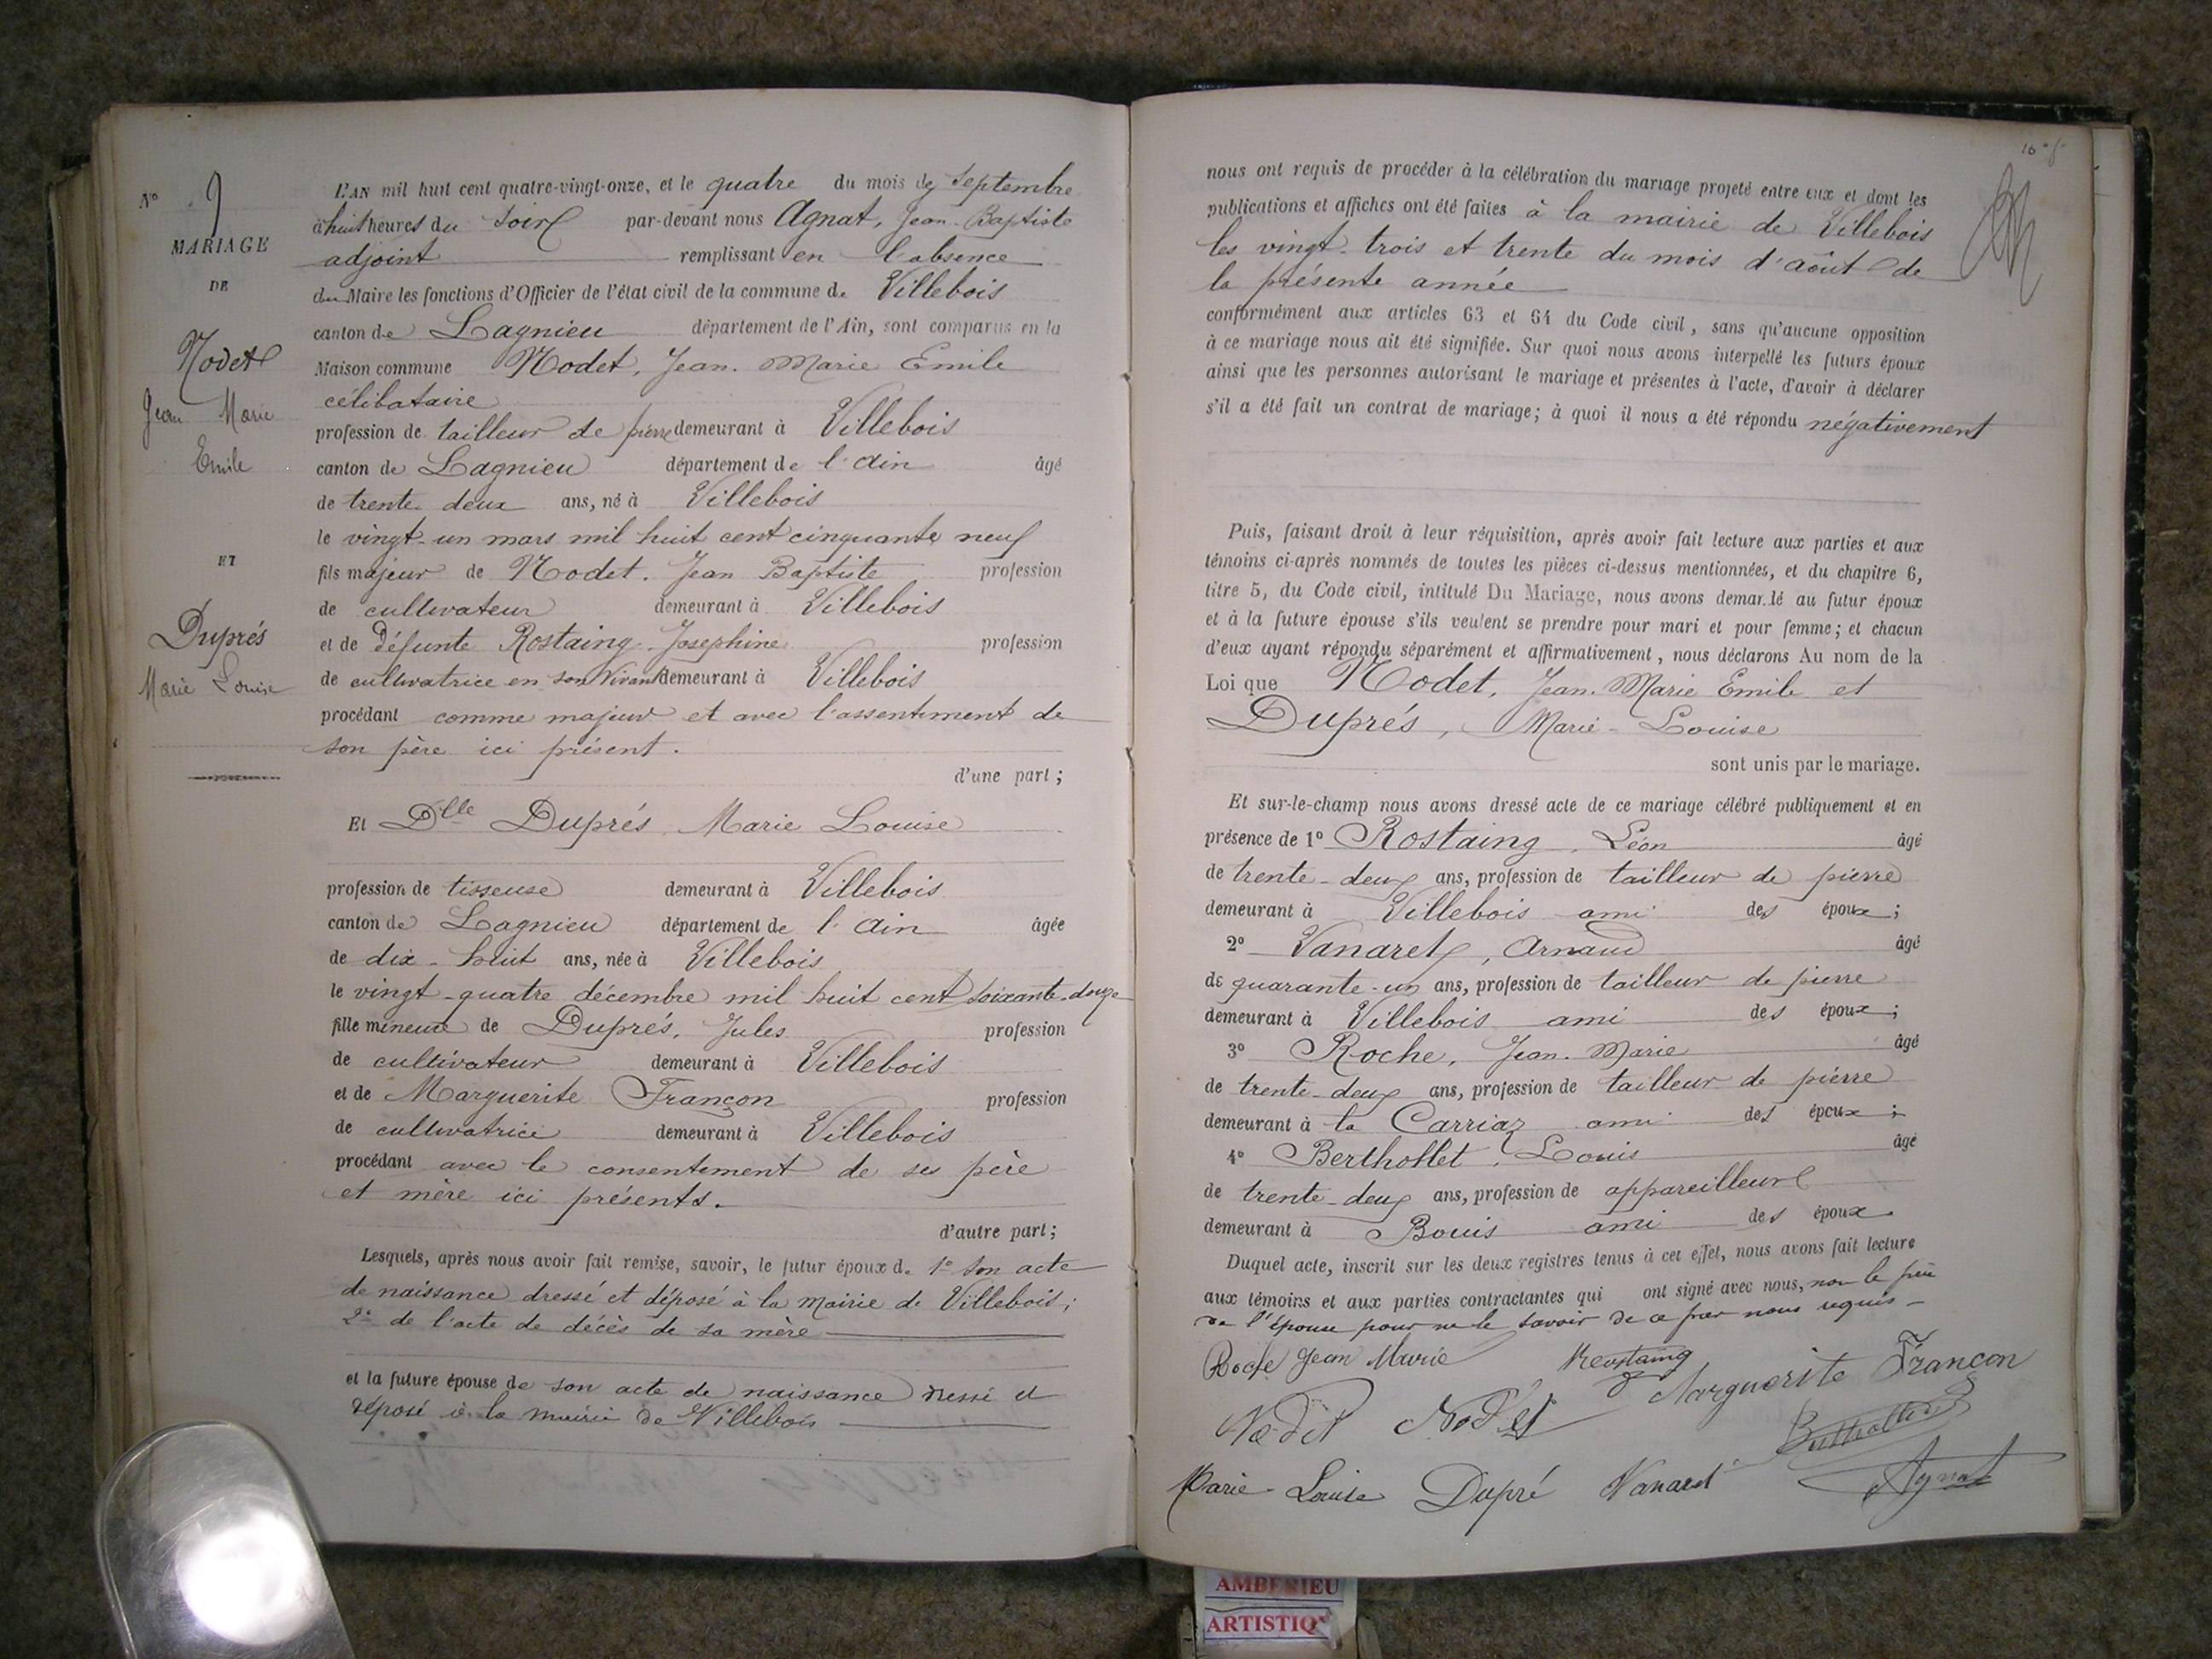 N° 9
MARIAGE
DE
Nodet
Jean Marie
Emile
ET
Duprés
Marie Louise
L'AN mil huit cent quatre-vingt-onze, et le quatre du mois de Septembre
à huit heures du Soir par-devant nous Agnat, Jean-Baptiste
adjoint remplissant en l'absence
du Maire les fonctions d'Officier de l'état civil de la commune de Villebois
canton de Lagnieu département de l'Ain, sont comparus en la
Maison commune Nodet, Jean-Marie Emile
célibataire
profession de tailleur de pierre demeurant à Villebois
canton de Lagnieu département de l'Ain âgé
de trente deux ans, né à Villebois
le vingt-un mars mil huit cent cinquante neuf
fils majeur de Nodet. Jean Baptiste profession
de cultivateur demeurant à Villebois
et de Défunte Rostaing Josephine profession
de cultivatrice en son vivant demeurant à Villebois
procédant comme majeur et avec l'assentiment de
son père ici présent.
d'une part;
Et Dlle Duprés, Marie Louise
profession de tisseuse demeurant à Villebois
canton de Lagnieu département de l'Ain âgée
de dix-huit ans, née à Villebois
le vingt-quatre décembre mil huit cent soixante-douze
fille mineure de Duprés, Jules profession
de cultivateur demeurant à Villebois
et de Marguerite Françon profession
de cultivatrice demeurant à Villebois
procédant avec le consentement de ses père
et mère ici présents.
d'autre part;
Lesquels, après nous avoir fait remise, savoir, le futur époux de 1° son acte
de naissance dressé et déposé à la Mairie de Villebois;
2° de l'acte de décès de sa mère
et la future épouse de son acte de naissance dressé et
déposé à la mairie de Villebois
nous ont requis de procéder à la célébration du mariage projeté entre eux et dont les
publications et affiches ont été faites à la mairie de Villebois
les vingt-trois et trente du mois d'août de
la présente année
conformément aux articles 63 et 64 du Code civil, sans qu'aucune opposition
à ce mariage nous ait été signifiée. Sur quoi nous avons interpellé les futurs époux
ainsi que les personnes autorisant le mariage et présentes à l'acte, d'avoir à déclarer
s'il a été fait un contrat de mariage; à quoi il nous a été répondu négativement
Puis, faisant droit à leur réquisition, après avoir fait lecture aux parties et aux
témoins ci-après nommés de toutes les pièces ci-dessus mentionnées, et du chapitre 6,
titre 5, du Code civil, intitulé Du Mariage, nous avons demandé au futur époux
et à la future épouse s'ils veulent se prendre pour mari et pour femme; et chacun
d'eux ayant répondu séparément et affirmativement, nous déclarons Au nom de la
Loi que Nodet, Jean-Marie Emile et
Duprés, Marie-Louise
sont unis par le mariage.
Et sur-le-champ nous avons dressé acte de ce mariage célébré publiquement et en
présence de 1° Rostaing, Léon âgé
de trente-deux ans, profession de tailleur de pierre
demeurant à Villebois ami des époux;
2° Vanaret, Arnaud âgé
de quarante-un ans, profession de tailleur de pierre
demeurant à Villebois ami des époux;
3° Roche, Jean-Marie âgé
de trente-deux ans, profession de tailleur de pierre
demeurant à la Carriaz ami des époux;
4° Berthollet, Louis âgé
de trente-deux ans, profession de appareilleur
demeurant à Bouis ami des époux
Duquel acte, inscrit sur les deux registres tenus à cet effet, nous avons fait lecture
aux témoins et aux parties contractantes qui ont signé avec nous, non le père
de l'épouse pour ne le savoir de ce par nous requis
Roche Jean Marie Reostaing Marguerite Françon
Nodet Nodet
Marie-Louise Dupré Vanaret Agnat
AMBERIEU
ARTISTIQ